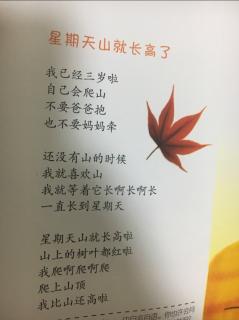 星期天山就长高了
我已经三岁啦
自己会爬山
不要爸爸抱
也不要妈妈牵
还没有山的时候
我就喜欢山
我就等着它长啊长啊长
一直长到星期天
星期天山就长高啦
山上的树叶都红啦
我爬啊爬啊爬
爬上山顶
我比山还高啦